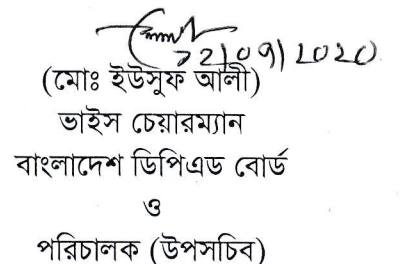 22/09/2020
(মোঃ ইউসুফ আলী)
ভাইস চেয়ারম্যান
বাংলাদেশ ডিপিএড বোর্ড
ও
পরিচালক (উপসচিব)